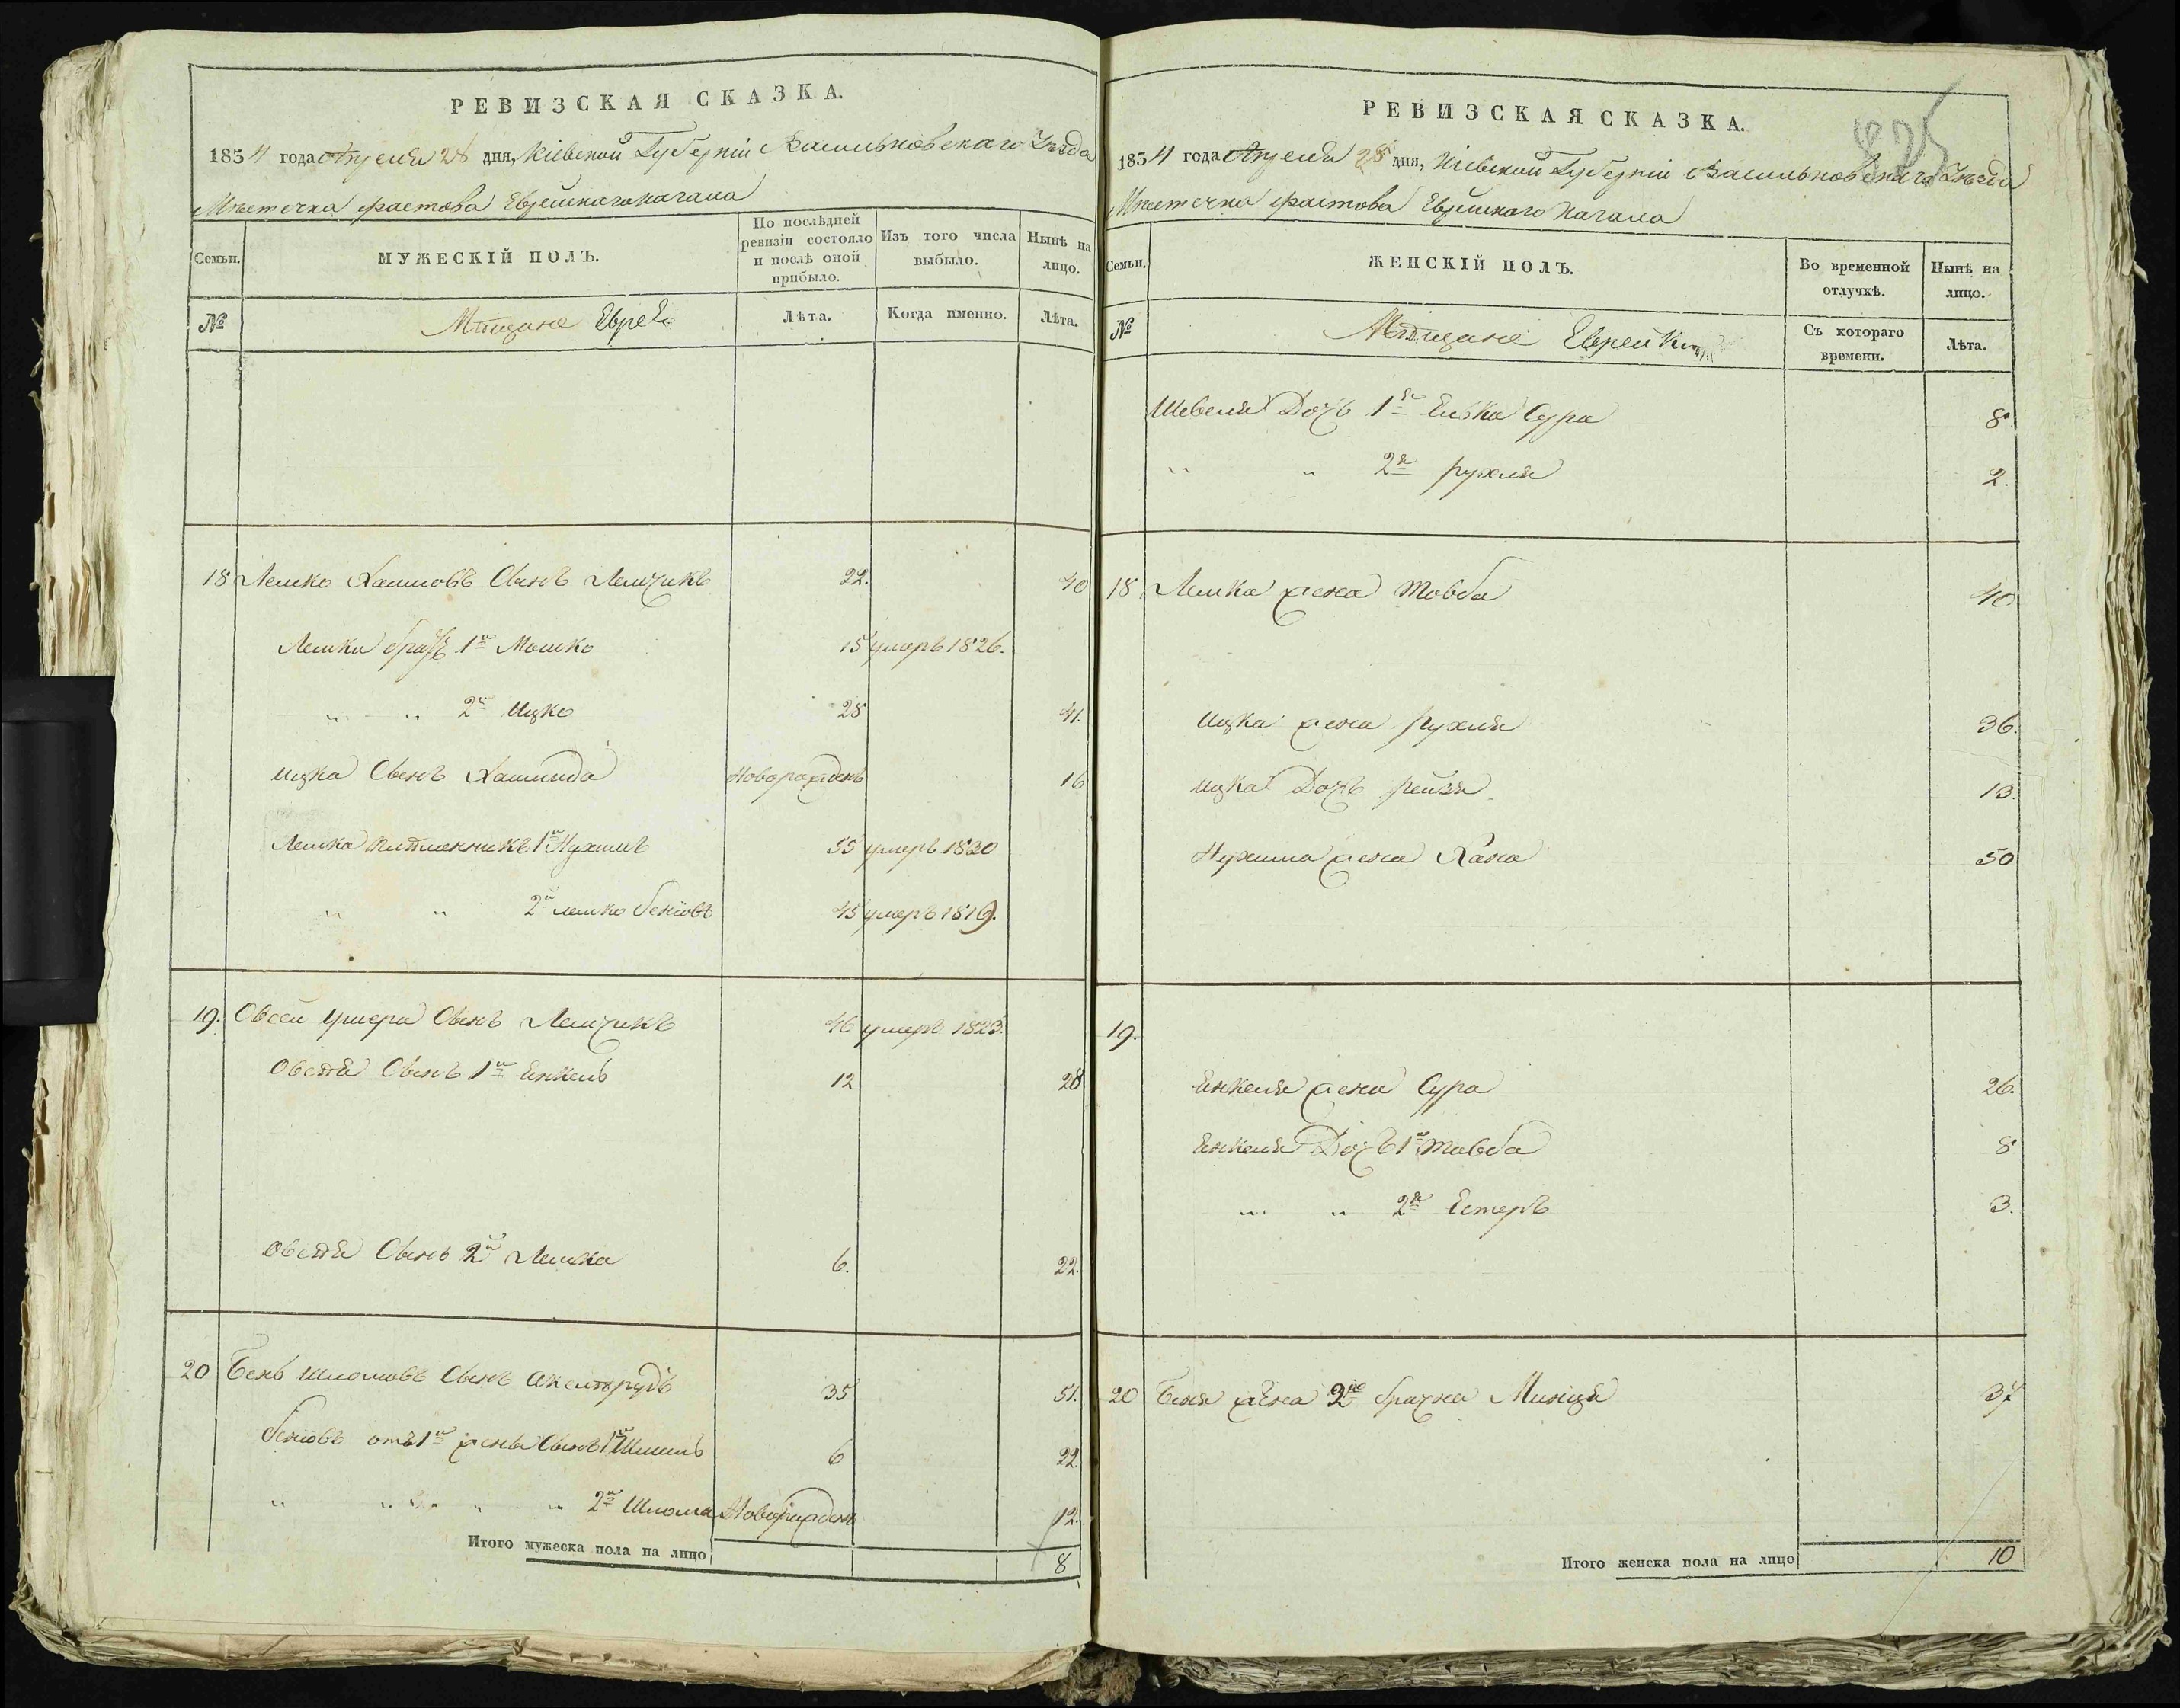 РЕВИЗСКАЯ СКАЗКА.
1834 года Апреля 28 дня, Кіевской Губерніи Васильковскаго Уезда
Местечка Фастова Еврейскаго Кагала
Семьи.
МУЖЕСКІЙ ПОЛЪ.
По послѣдней ревизіи состояло и послѣ оной прибыло.
Изъ того числа выбыло.
Нынѣ на лицо.
№
Мѣщане Евреи
Лѣта.
Когда именно.
Лѣта.
18 Лейко Хаимовъ Сынъ 22. 40
братъ 1й Мошко 15 умеръ 1826.
" " 2й Ицко 25 41.
Ицка Сынъ новорожденъ 16
племенникъ 1й Нухимъ 55 умеръ 1830
" " 2й Беніовъ 45 умеръ 1819.
19. Овсей Сынъ 46 умеръ 1823.
Овсѣя Сынъ 1й Енкель 12 28
Овсѣя Сынъ 2й 6. 22.
20 Бень Шломовъ Сынъ 35 51.
Беніовъ отъ 1й жены Сынъ 1й 6 22
" " " " " 2й Шлома Новорожденъ 12.
Итого мужеска пола на лицо 8
РЕВИЗСКАЯ СКАЗКА.
825
1834 года Апреля 28 дня, Кіевской Губерніи Васильковскаго Уезда
Местечка Фастова Еврейскаго Кагала
Семьи.
ЖЕНСКІЙ ПОЛЪ.
Во временной отлучкѣ.
Нынѣ на лицо.
№
Мѣщане Еврейки
Съ котораго времени.
Лѣта.
Шевеля Дочь 1я Сура 8
" " 2я Рухля 2.
18 жена Товба 40
Ицка жена Рухля 36.
Ицка Дочь Рейзя 13.
Нухима жена Хана 50
19.
Енкеля жена Сура 26.
Енкеля Дочь 1я Товба 8
" " 2я Естеръ 3.
20 Беня жена 2го брачна Минця 37
Итого женска пола на лицо 10